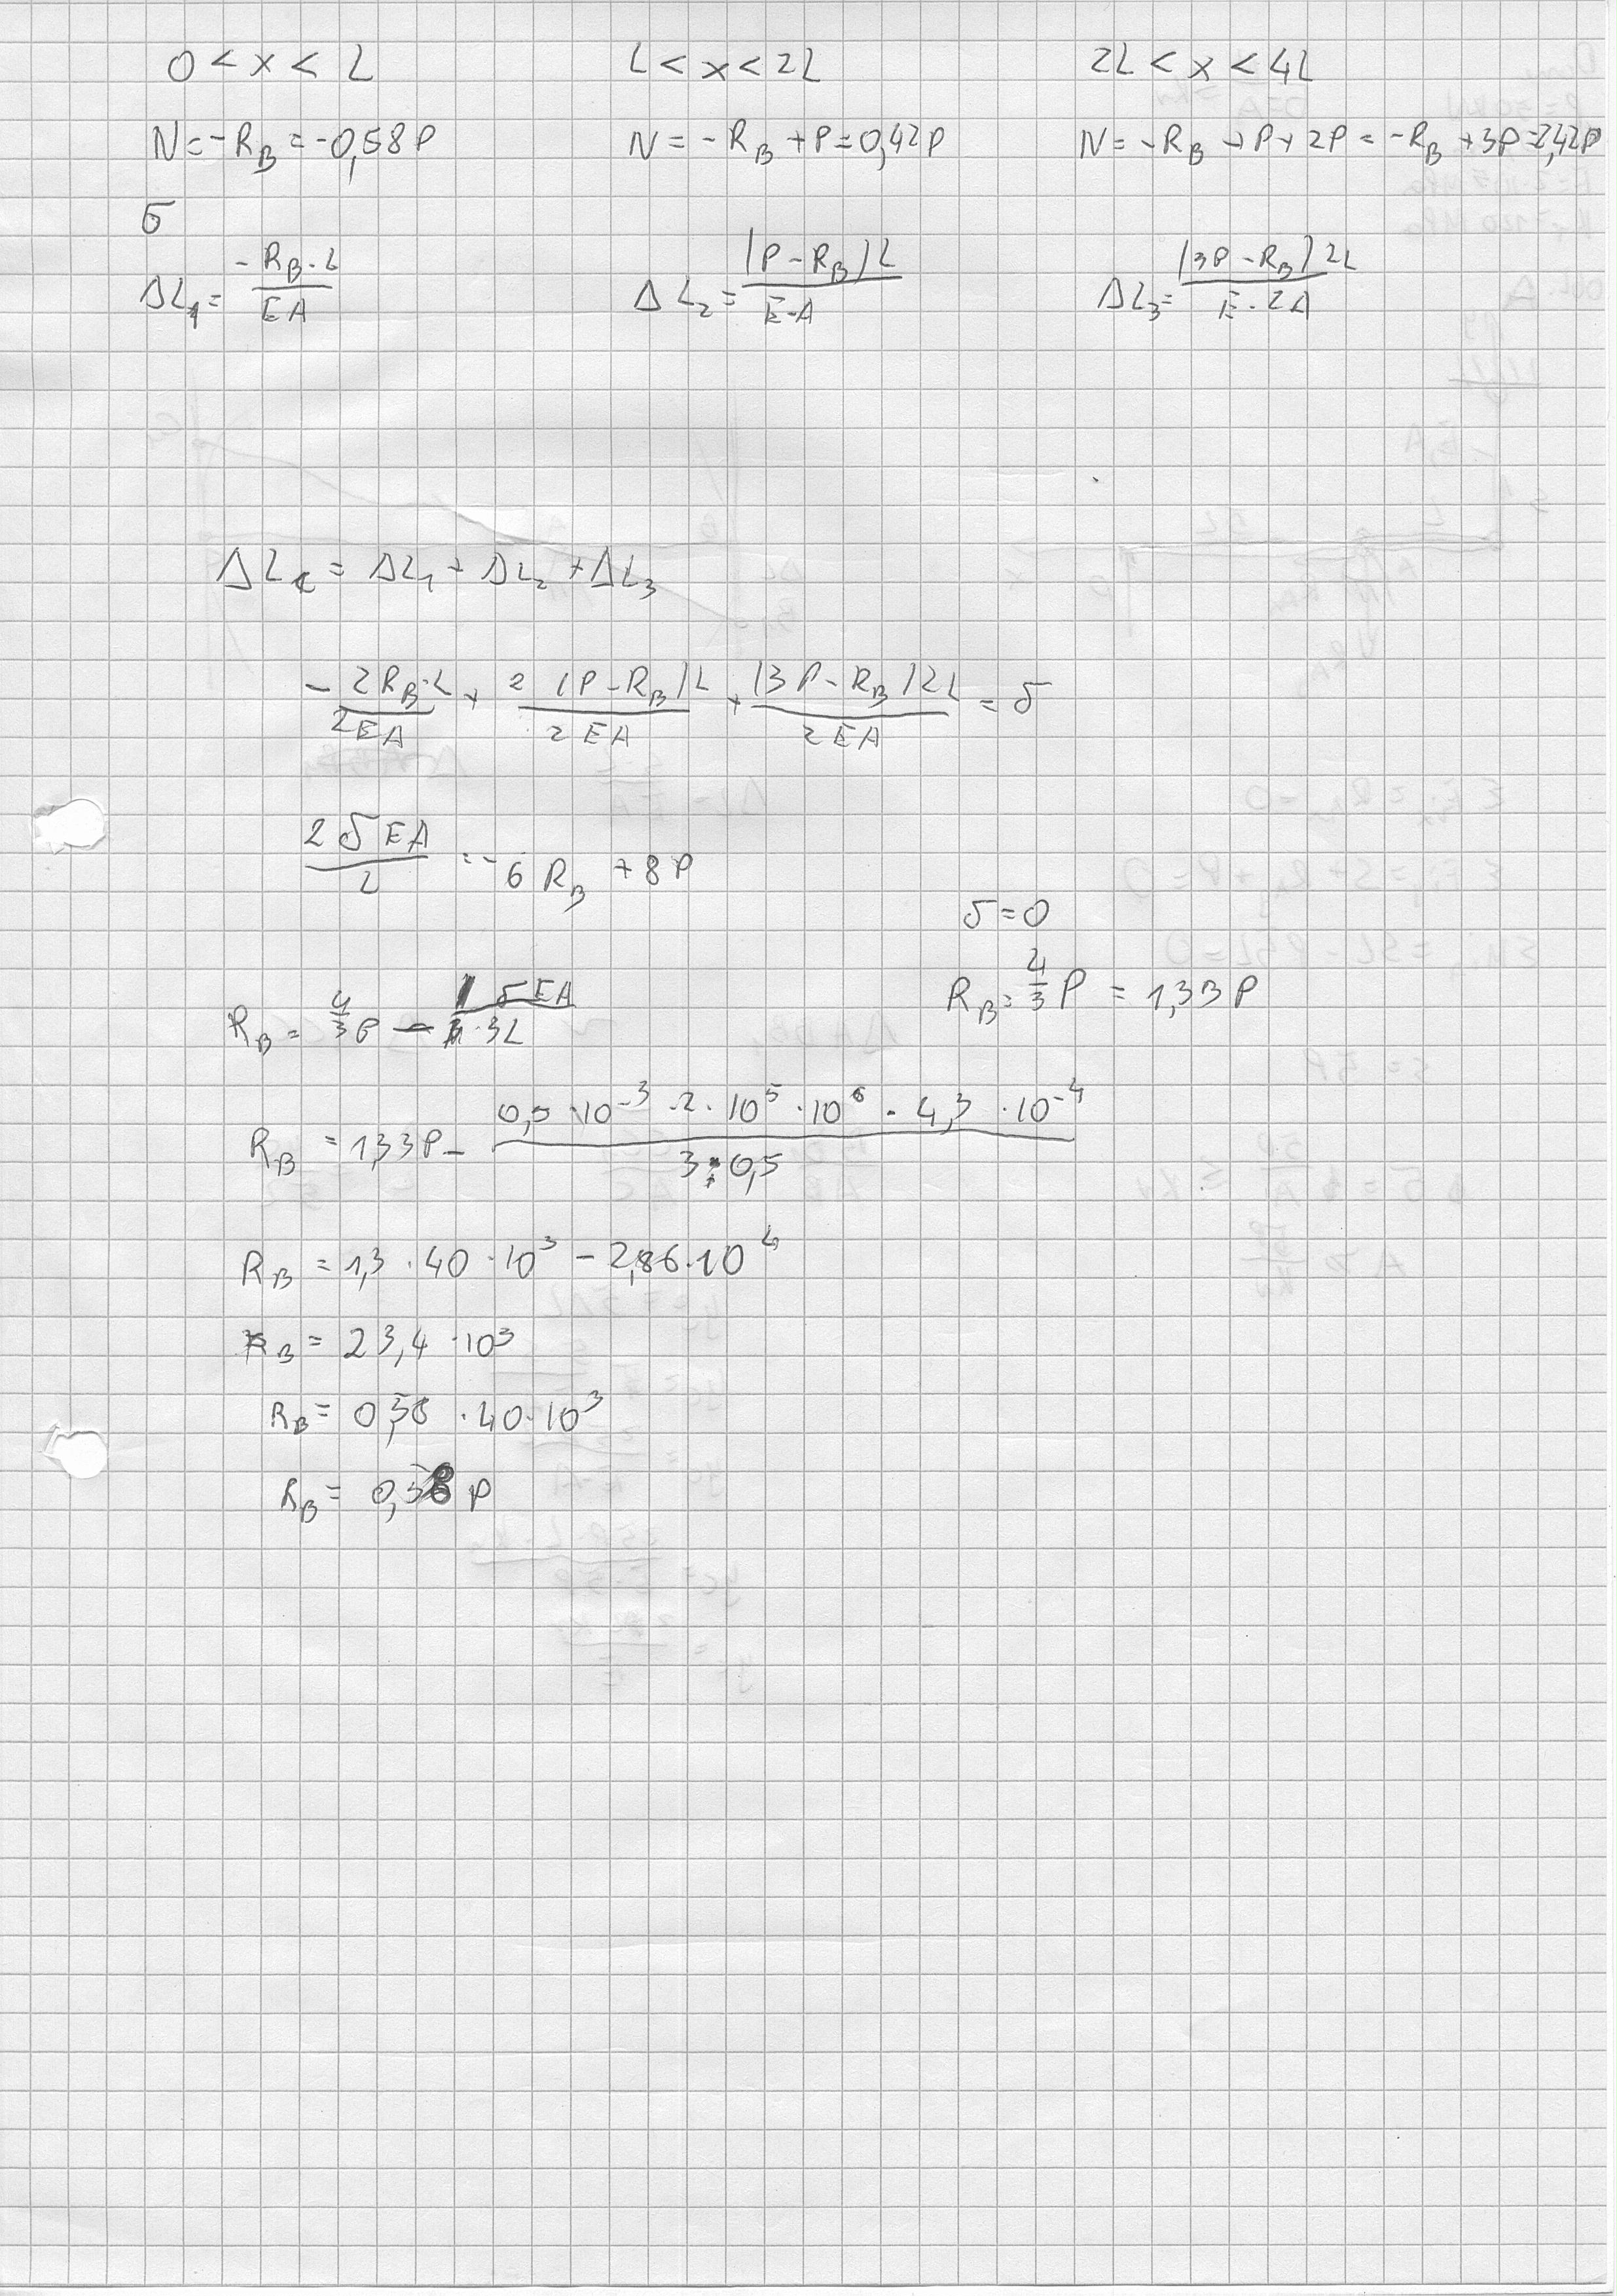 0 < x < L    L < x < 2L    2L < x < 4L
N = -R_B = -0,58P    N = -R_B + P = 0,42P    N = -R_B + P + 2P = -R_B + 3P = 2,42P
σ
ΔL_1 = (-R_B · L)/(EA)    ΔL_2 = ((P - R_B)L)/(E·A)    ΔL_3 = ((3P - R_B)2L)/(E·2A)
ΔL_c = ΔL_1 + ΔL_2 + ΔL_3
-(2R_B·L)/(2EA) + (2(P - R_B)L)/(2EA) + ((3P - R_B)2L)/(2EA) = δ
(2δEA)/L = -6R_B + 8P
δ = 0
R_B = 4/3 P - (1δEA)/(3L)    R_B = 4/3 P = 1,33P
R_B = 1,33P - (0,5·10^-3 · 2·10^5 · 10^6 · 4,3·10^-4)/(3·0,5)
R_B = 1,3 · 40 · 10^3 - 2,86·10^4
R_B = 23,4 · 10^3
R_B = 0,58 · 40·10^3
R_B = 0,58 P